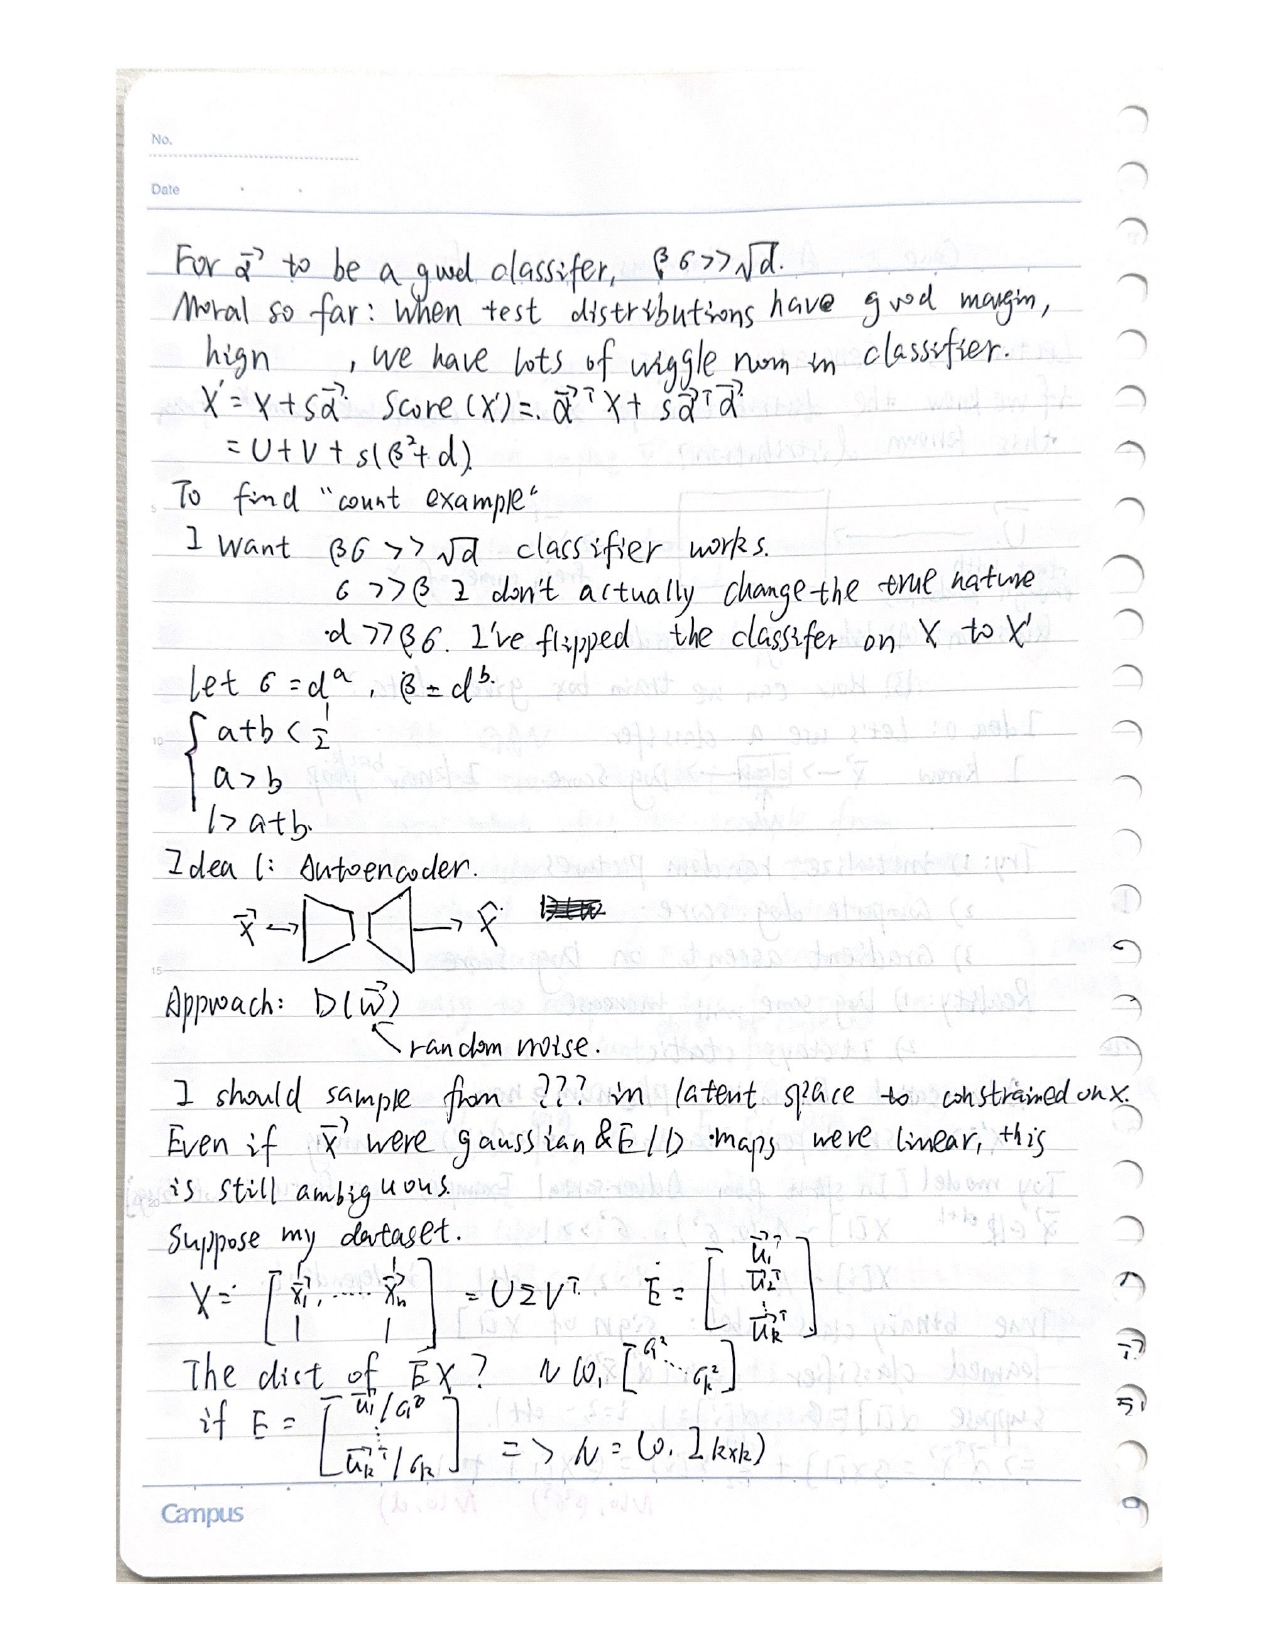 No.
Date
For α⃗ to be a good classifer, βσ >> √d.
Moral so far: when test distributions have good margin,
hign , we have lots of wiggle room in classifier.
X' = X + sα⃗. Score (X') = α⃗ᵀX + sα⃗ᵀα⃗
= U + V + s(β²+d).
To find "count example"
I want βσ >> √d classifier works.
σ >> β I don't actually change the true nature
d >> βσ. I've flipped the classifer on X to X'
Let σ = dᵃ, β = dᵇ.
{ a+b < 1/2
a > b
1 > a+b.
Idea 1: Autoencoder.
x⃗ → → x̂
Approach: D(w⃗)
random noise.
I should sample from ??? in latent space to constrained on x.
Even if x⃗ were gaussian & E/D maps were linear, this
is still ambiguous.
Suppose my dataset.
X = [x⃗₁, ...... x⃗ₙ] = UΣVᵀ. E = [u⃗₁ᵀ u⃗₂ᵀ ⋮ u⃗ₖᵀ]
The dict of EX? N(0, [σ₁² ⋱ σₖ²]
if E = [u⃗₁ᵀ/σ₁ ⋮ u⃗ₖᵀ/σₖ] => N = (0, Iₖₓₖ)
Campus